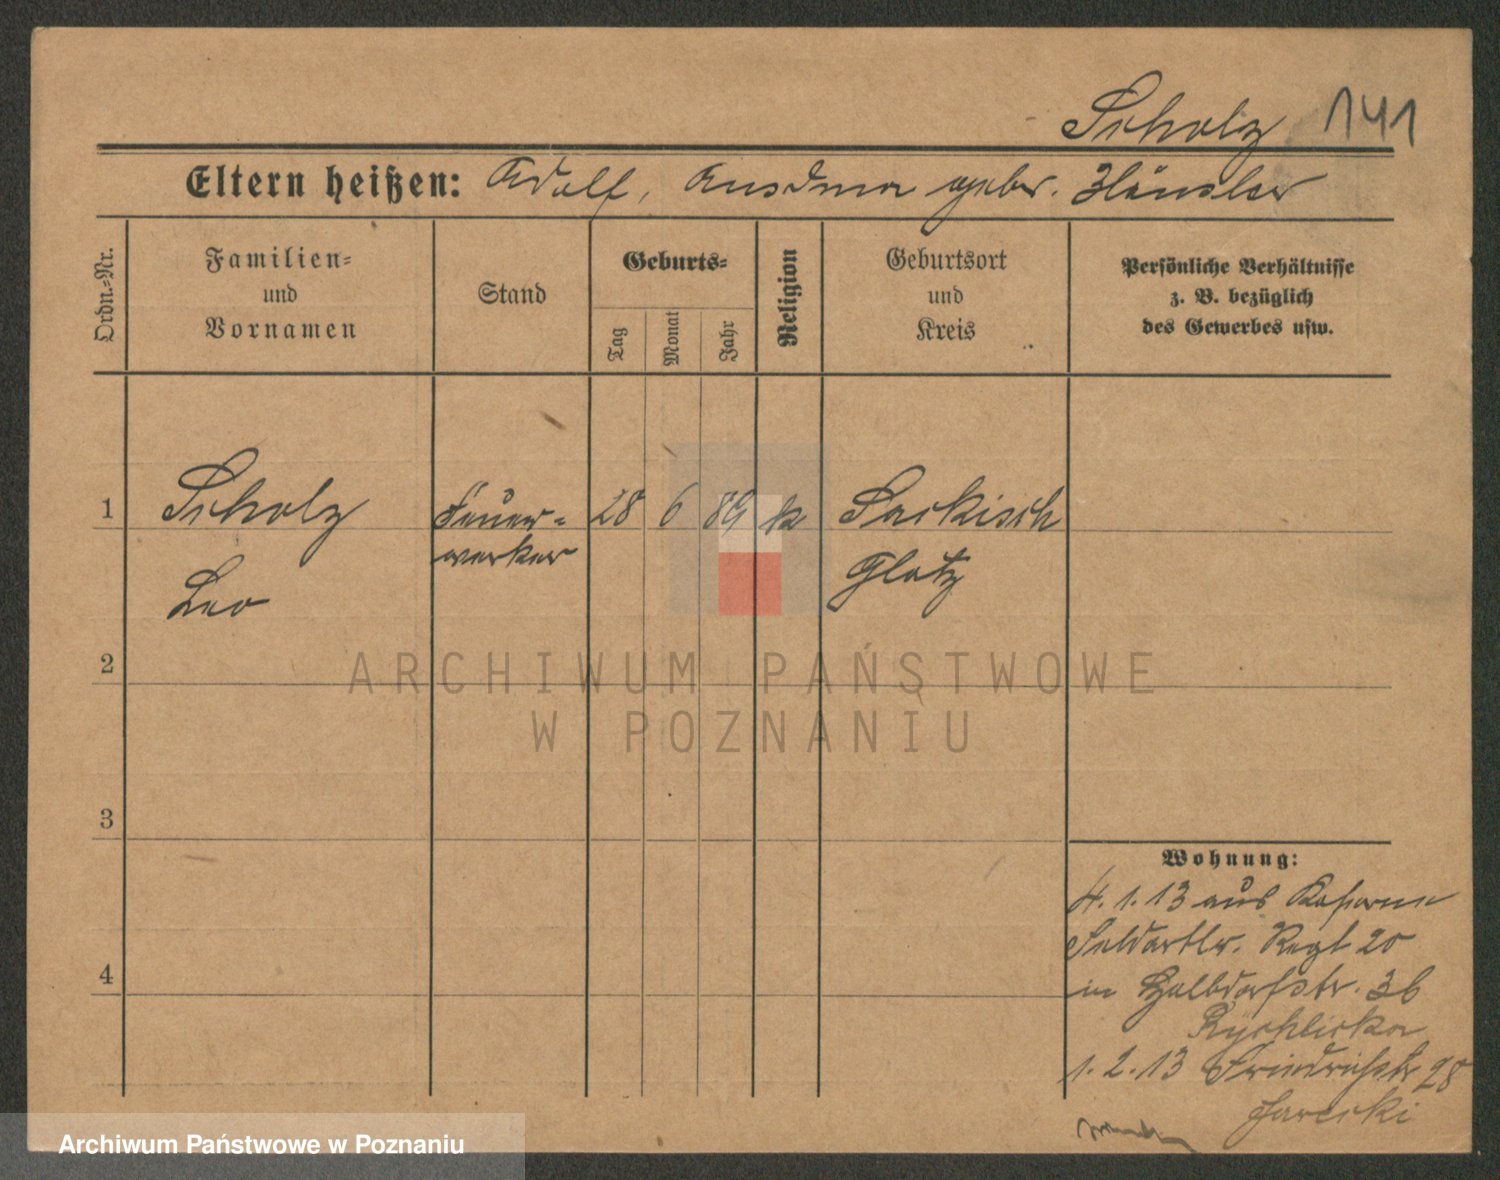 Scholz 141
Eltern heißen: Adolf, geb.
Ordn.=Nr.
Familien=
und
Vornamen
Stand
Geburts=
Tag
Monat
Jahr
Religion
Geburtsort
und
Kreis
Persönliche Verhältnisse
z. B. bezüglich
des Gewerbes usw.
1 Scholz Feuer= 28 6 89 k Sackisch
werker
Leo Glatz
2
3
4
Wohnung:
4. 1. 13 aus Kaserne
Feldartlr. Regt 20
in Halbdorfstr. 36
Rychlicka
1. 2. 13 Friedrichstr 28
Jarecki
ARCHIWUM PAŃSTWOWE
W POZNANIU
Archiwum Państwowe w Poznaniu